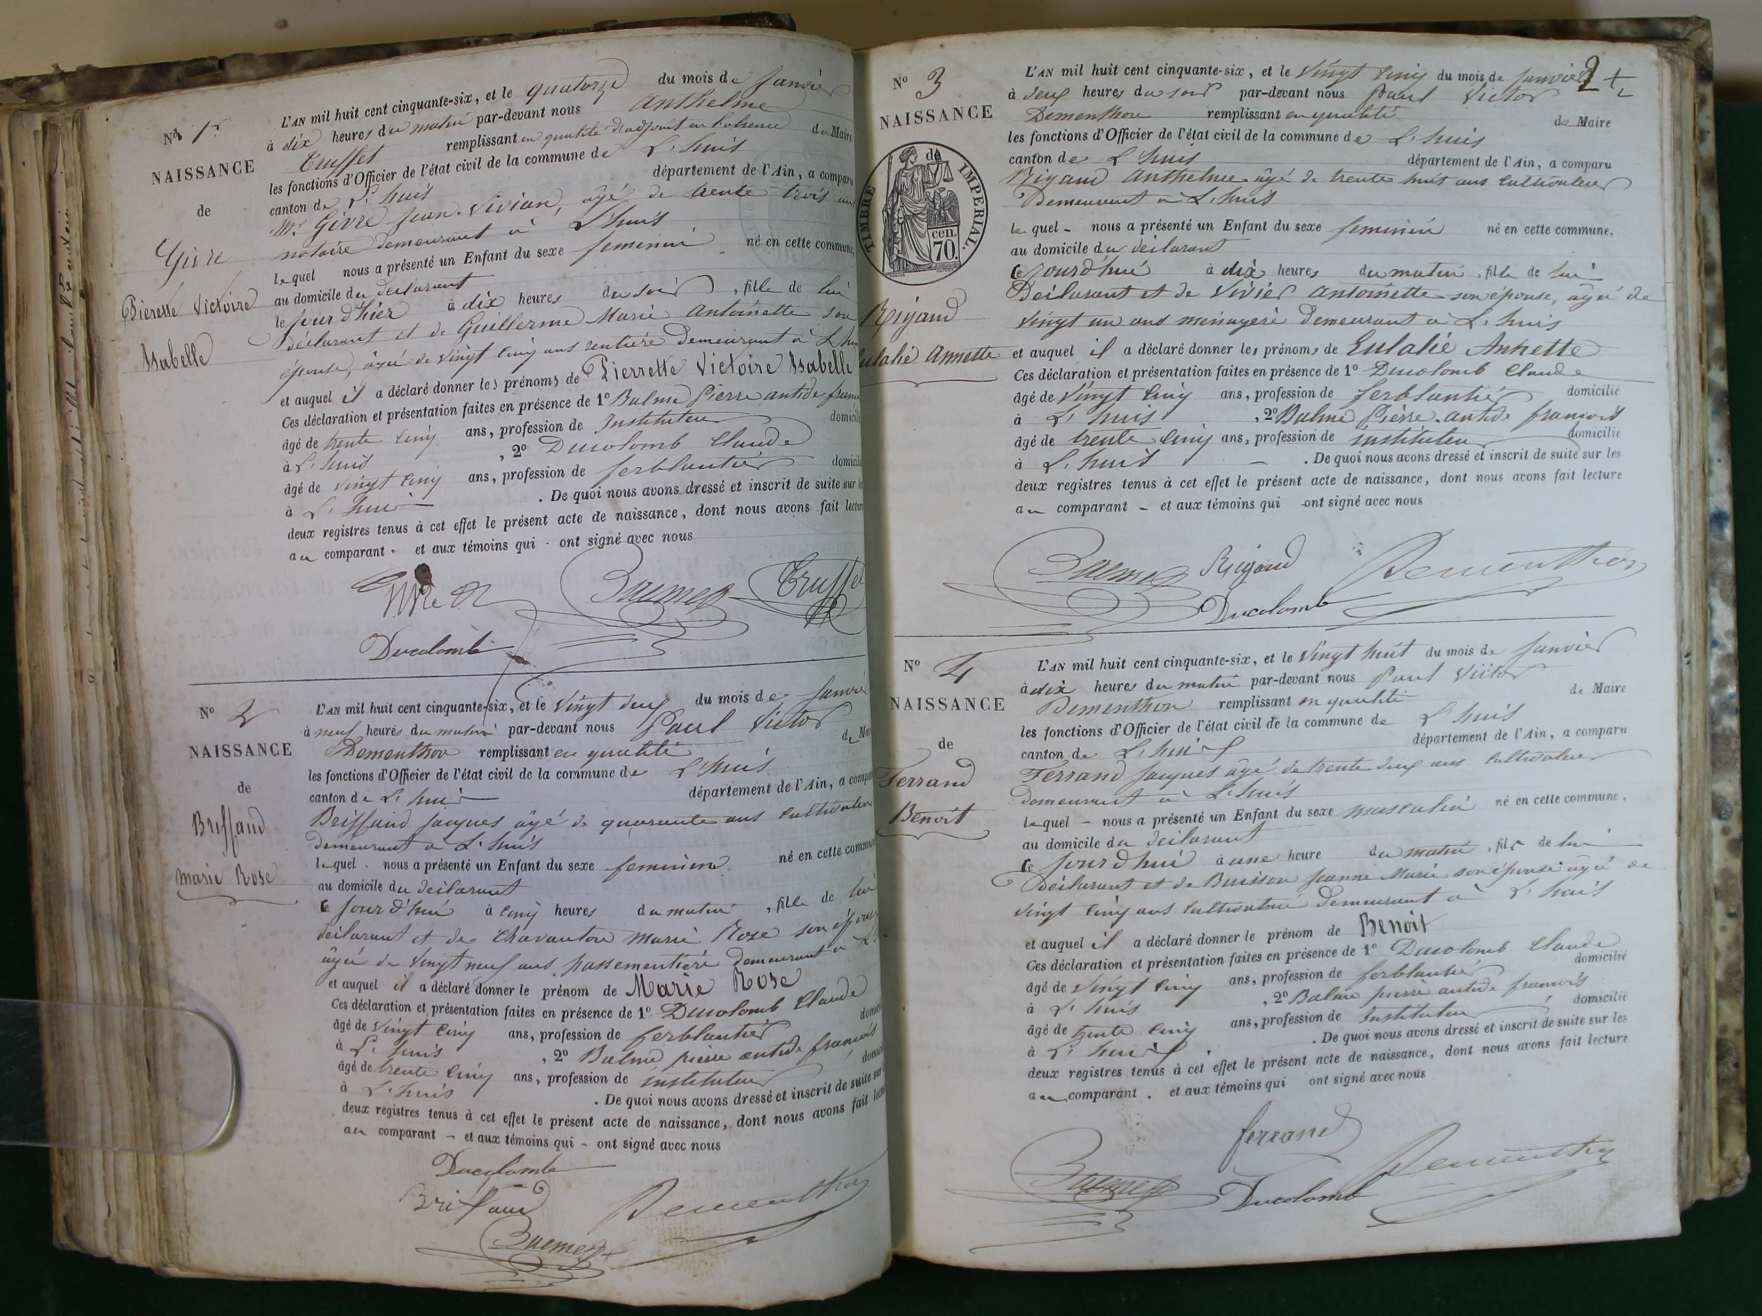 Nº 1er
NAISSANCE
de
Givre
Pierette Victoire
Isabelle
L'AN mil huit cent cinquante-six, et le quatorze du mois de Janvier
à dix heures du matin par-devant nous Anthelme
Truffet remplissant en qualité d'adjoint en l'absence du Maire
les fonctions d'Officier de l'état civil de la commune de L'huis
canton de L'huis département de l'Ain, a comparu
Mr Givre Jean-Vivian, âgé de trente trois ans
notaire demeurant à L'huis
lequel nous a présenté un Enfant du sexe feminin né en cette commune,
au domicile du déclarant
le jour d'hier à dix heures du soir, fille de lui
déclarant et de Guillerme Marie Antoinette son
épouse, âgée de vingt cinq ans rentière demeurant à L'huis
et auquel il a déclaré donner les prénoms de Pierrette Victoire Isabelle
Ces déclaration et présentation faites en présence de 1º Balme Pierre antide
âgé de trente cinq ans, profession de Instituteur
à L'huis, 2º Ducolomb Claude
âgé de vingt cinq ans, profession de ferblantier
à L'huis. De quoi nous avons dressé et inscrit de suite sur
deux registres tenus à cet effet le présent acte de naissance, dont nous avons fait lecture
au comparant et aux témoins qui ont signé avec nous
Givre Balme Truffet
Ducolomb
Nº 2
NAISSANCE
de
Briffaud
Marie Rose
L'AN mil huit cent cinquante-six, et le vingt deux du mois de Janvier
à neuf heures du matin par-devant nous Paul Victor
Dementhon remplissant en qualité de
les fonctions d'Officier de l'état civil de la commune de L'huis
canton de L'huis département de l'Ain, a comparu
Briffaud Jacques âgé de quarante ans cultivateur
demeurant à L'huis
lequel nous a présenté un Enfant du sexe feminin né en cette commune
au domicile du déclarant
ce jourd'hui à cinq heures du matin, fille de lui
déclarant et de Chavanton Marie Rose son épouse
âgée de vingt neuf ans passementière demeurant à
et auquel il a déclaré donner le prénom de Marie Rose
Ces déclaration et présentation faites en présence de 1º Ducolomb Claude
âgé de vingt cinq ans, profession de ferblantier
à L'huis, 2º Balme pierre antide françois
âgé de trente cinq ans, profession de instituteur
à L'huis. De quoi nous avons dressé et inscrit de suite sur
deux registres tenus à cet effet le présent acte de naissance, dont nous avons fait
au comparant et aux témoins qui ont signé avec nous
Ducolomb
Briffaud Dementhon
Balme
2
Nº 3
NAISSANCE
de
TIMBRE IMPERIAL.
cen.
70.
Rigaud
Eulalie Annette
L'AN mil huit cent cinquante-six, et le vingt cinq du mois de Janvier
à deux heures du soir par-devant nous Paul Victor
Dementhon remplissant en qualité de Maire
les fonctions d'Officier de l'état civil de la commune de L'huis
canton de L'huis département de l'Ain, a comparu
Rigaud Anthelme âgé de trente huit ans cultivateur
Demeurant à L'huis
lequel - nous a présenté un Enfant du sexe feminin né en cette commune,
au domicile du déclarant
ce jourd'hui à dix heures du matin, fille de lui
Déclarant et de Vivier Antoinette son épouse, âgée de
vingt un ans ménagère demeurant à L'huis
et auquel il a déclaré donner les prénoms de Eulalie Annette
Ces déclaration et présentation faites en présence de 1º Ducolomb Claude
âgé de vingt cinq ans, profession de ferblantier domicilié
à L'huis, 2º Balme Pierre-antide françois
âgé de trente cinq ans, profession de instituteur domicilié
à L'huis - . De quoi nous avons dressé et inscrit de suite sur les
deux registres tenus à cet effet le présent acte de naissance, dont nous avons fait lecture
au comparant - et aux témoins qui ont signé avec nous
Balme Rigaud Dementhon
Ducolomb
Nº 4
NAISSANCE
de
Ferrand
Benoit
L'AN mil huit cent cinquante-six, et le vingt huit du mois de Janvier
à dix heures du matin par-devant nous Paul Victor
Dementhon remplissant en qualité de Maire
les fonctions d'Officier de l'état civil de la commune de L'huis
canton de L'huis département de l'Ain, a comparu
Ferrand Jacques âgé de trente deux ans cultivateur
demeurant à L'huis
lequel - nous a présenté un Enfant du sexe masculin né en cette commune,
au domicile du déclarant
ce jourd'hui à une heure du matin, fils de lui
Déclarant et de Buisson Jeanne Marie son épouse âgée de
vingt cinq ans cultivatrice demeurant à L'huis
et auquel il a déclaré donner le prénom de Benoit
Ces déclaration et présentation faites en présence de 1º Ducolomb Claude
âgé de vingt cinq ans, profession de ferblantier domicilié
à L'huis, 2º Balme pierre antide françois
âgé de trente cinq ans, profession de Instituteur domicilié
à L'huis. De quoi nous avons dressé et inscrit de suite sur les
deux registres tenus à cet effet le présent acte de naissance, dont nous avons fait lecture
au comparant. et aux témoins qui ont signé avec nous
ferrand
Balme Ducolomb Dementhon